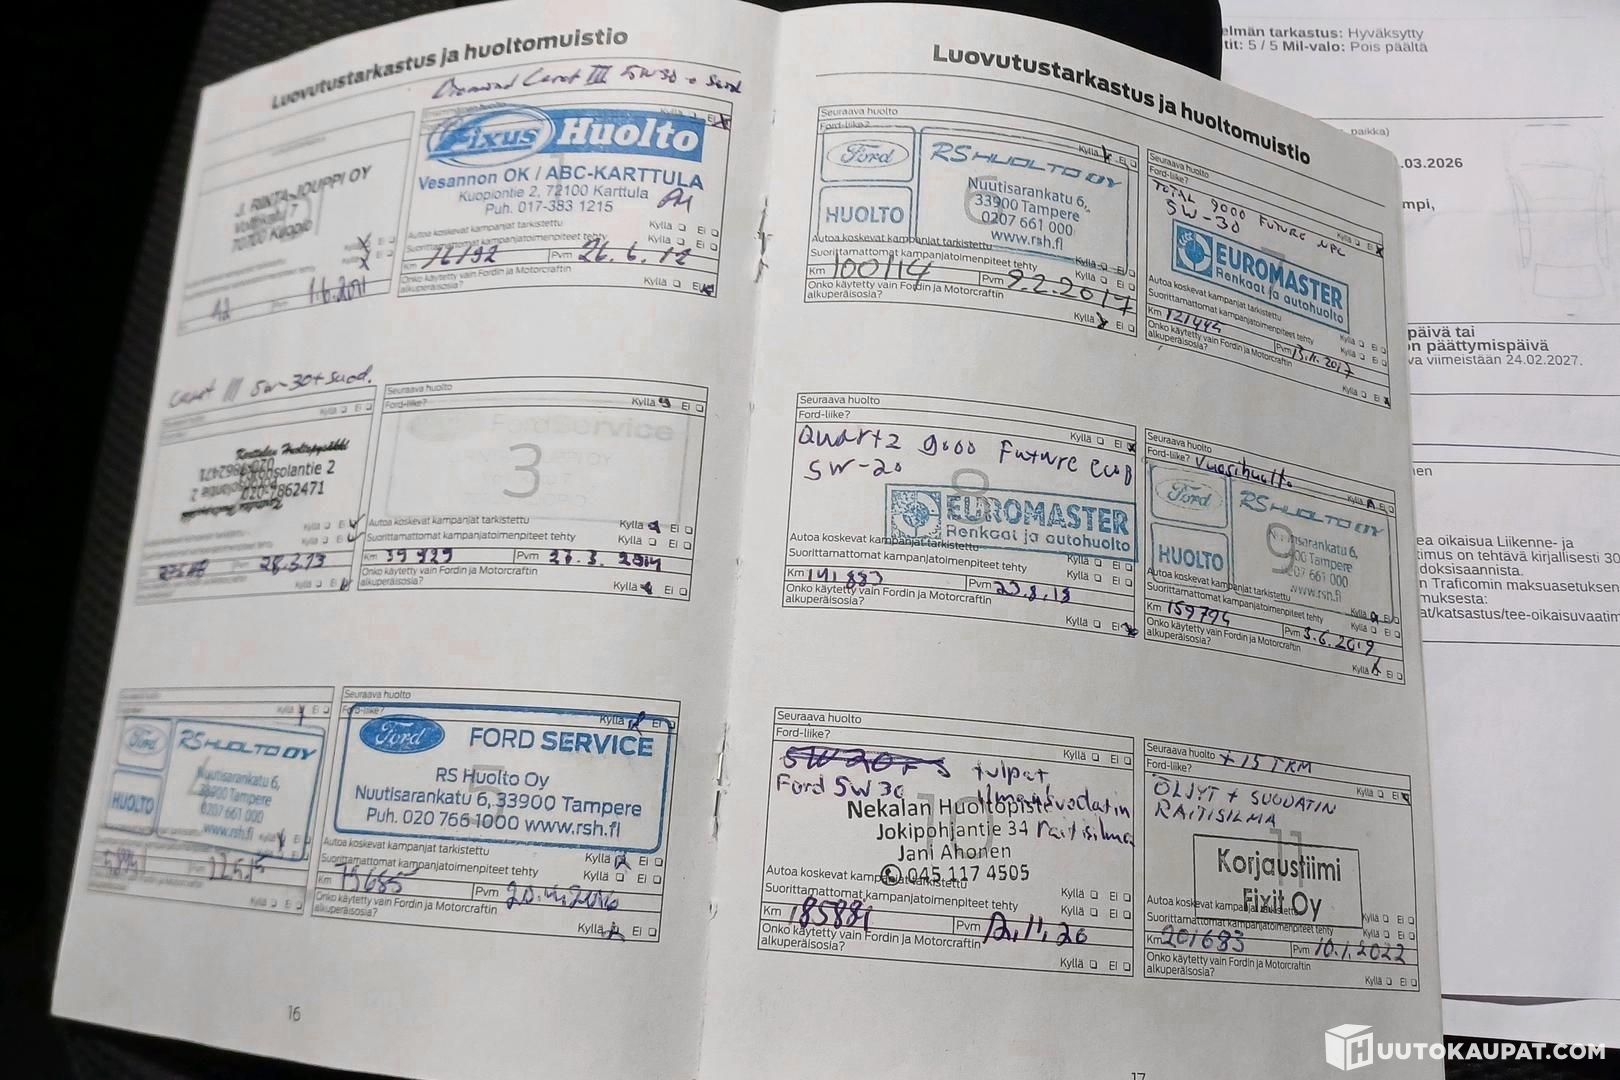 Luovutustarkastus ja huoltomuistio
Diamond Carat III 5W30 + suod
J. RINTA-JOUPPI OY
Volttikatu 7
70700 Kuopio
Pvm 1.6.2011
Kyllä Ei
Fixus Huolto
1
Vesannon OK / ABC-KARTTULA
Kuopiontie 2, 72100 Karttula
Puh. 017-383 1215
Autoa koskevat kampanjat tarkistettu Kyllä Ei
Suorittamattomat kampanjatoimenpiteet tehty Kyllä Ei
Km Pvm 26.6.12
Onko käytetty vain Fordin ja Motorcraftin
alkuperäisosia? Kyllä Ei
Carat III 5w-30 + suod.
Karttulan Huoltopysäkki
020-7862471
28.3.13
Seuraava huolto
Ford-liike? Kyllä Ei
FordService
3
Autoa koskevat kampanjat tarkistettu Kyllä Ei
Suorittamattomat kampanjatoimenpiteet tehty Kyllä Ei
Km 39 929 Pvm 26.3.2014
Onko käytetty vain Fordin ja Motorcraftin
alkuperäisosia? Kyllä Ei
Kyllä Ei
Ford RS HUOLTO OY
HUOLTO
Nuutisarankatu 6,
33900 Tampere
0207 661 000
www.rsh.fi
Pvm
Kyllä Ei
Seuraava huolto
Ford-liike? Kyllä Ei
Ford FORD SERVICE
5
RS Huolto Oy
Nuutisarankatu 6, 33900 Tampere
Puh. 020 766 1000 www.rsh.fi
Autoa koskevat kampanjat tarkistettu Kyllä Ei
Suorittamattomat kampanjatoimenpiteet tehty Kyllä Ei
Km 79685 Pvm
Onko käytetty vain Fordin ja Motorcraftin
alkuperäisosia? Kyllä Ei
16
Luovutustarkastus ja huoltomuistio
Seuraava huolto
Ford-liike? Kyllä Ei
Ford RS HUOLTO OY
HUOLTO
6
Nuutisarankatu 6,
33900 Tampere
0207 661 000
www.rsh.fi
Autoa koskevat kampanjat tarkistettu Kyllä Ei
Suorittamattomat kampanjatoimenpiteet tehty Kyllä Ei
Km 100114 Pvm 9.2.2017
Onko käytetty vain Fordin ja Motorcraftin
alkuperäisosia? Kyllä Ei
Seuraava huolto
Ford-liike? Kyllä Ei
TOTAL 9000 FUTURE NFC
5W-30
7
EUROMASTER
Renkaat ja autohuolto
Autoa koskevat kampanjat tarkistettu Kyllä Ei
Suorittamattomat kampanjatoimenpiteet tehty Kyllä Ei
Km 121445 Pvm 13.11.2017
Onko käytetty vain Fordin ja Motorcraftin
alkuperäisosia? Kyllä Ei
Seuraava huolto
Ford-liike? Kyllä Ei
Quartz 9000 Future ecob
5W-20
8
EUROMASTER
Renkaat ja autohuolto
Autoa koskevat kampanjat tarkistettu Kyllä Ei
Suorittamattomat kampanjatoimenpiteet tehty Kyllä Ei
Km 141 883 Pvm 23.8.18
Onko käytetty vain Fordin ja Motorcraftin
alkuperäisosia? Kyllä Ei
Seuraava huolto
Ford-liike? Vuosihuolto Kyllä Ei
Ford RS HUOLTO OY
HUOLTO
9
Nuutisarankatu 6,
33900 Tampere
0207 661 000
www.rsh.fi
Autoa koskevat kampanjat tarkistettu Kyllä Ei
Suorittamattomat kampanjatoimenpiteet tehty Kyllä Ei
Km 159794 Pvm 3.6.2019
Onko käytetty vain Fordin ja Motorcraftin
alkuperäisosia? Kyllä Ei
Seuraava huolto
Ford-liike? Kyllä Ei
tulpat
Ford 5W30 Ilmansuodatin
raitisilma
10
Nekalan Huoltopiste
Jokipohjantie 34
Jani Ahonen
045 117 4505
Autoa koskevat kampanjat tarkistettu Kyllä Ei
Suorittamattomat kampanjatoimenpiteet tehty Kyllä Ei
Km 185881 Pvm 12.11.20
Onko käytetty vain Fordin ja Motorcraftin
alkuperäisosia? Kyllä Ei
Seuraava huolto + 15 TKM
Ford-liike? Kyllä Ei
ÖLJYT + SUODATIN
RAITISILMA
11
Korjaustiimi
Fixit Oy
Autoa koskevat kampanjat tarkistettu Kyllä Ei
Suorittamattomat kampanjatoimenpiteet tehty Kyllä Ei
Km 201683 Pvm 10.1.2022
Onko käytetty vain Fordin ja Motorcraftin
alkuperäisosia? Kyllä Ei
17
elmän tarkastus: Hyväksytty
tit: 5 / 5 Mil-valo: Pois päältä
paikka)
.03.2026
mpi,
päivä tai
on päättymispäivä
va viimeistään 24.02.2027.
nen
ea oikaisua Liikenne- ja
timus on tehtävä kirjallisesti 30
doksisaannista.
n Traficomin maksuasetuksen
muksesta:
at/katsastus/tee-oikaisuvaatim
HUUTOKAUPAT.COM